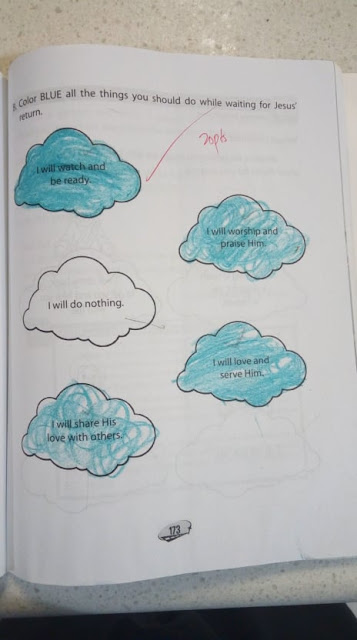 Color BLUE all the things you should do while waiting for Jesus'
return.
20pts
I will watch and
be ready.
I will worship and
praise Him.
I will do nothing.
I will love and
serve Him.
I will share His
love with others.
173